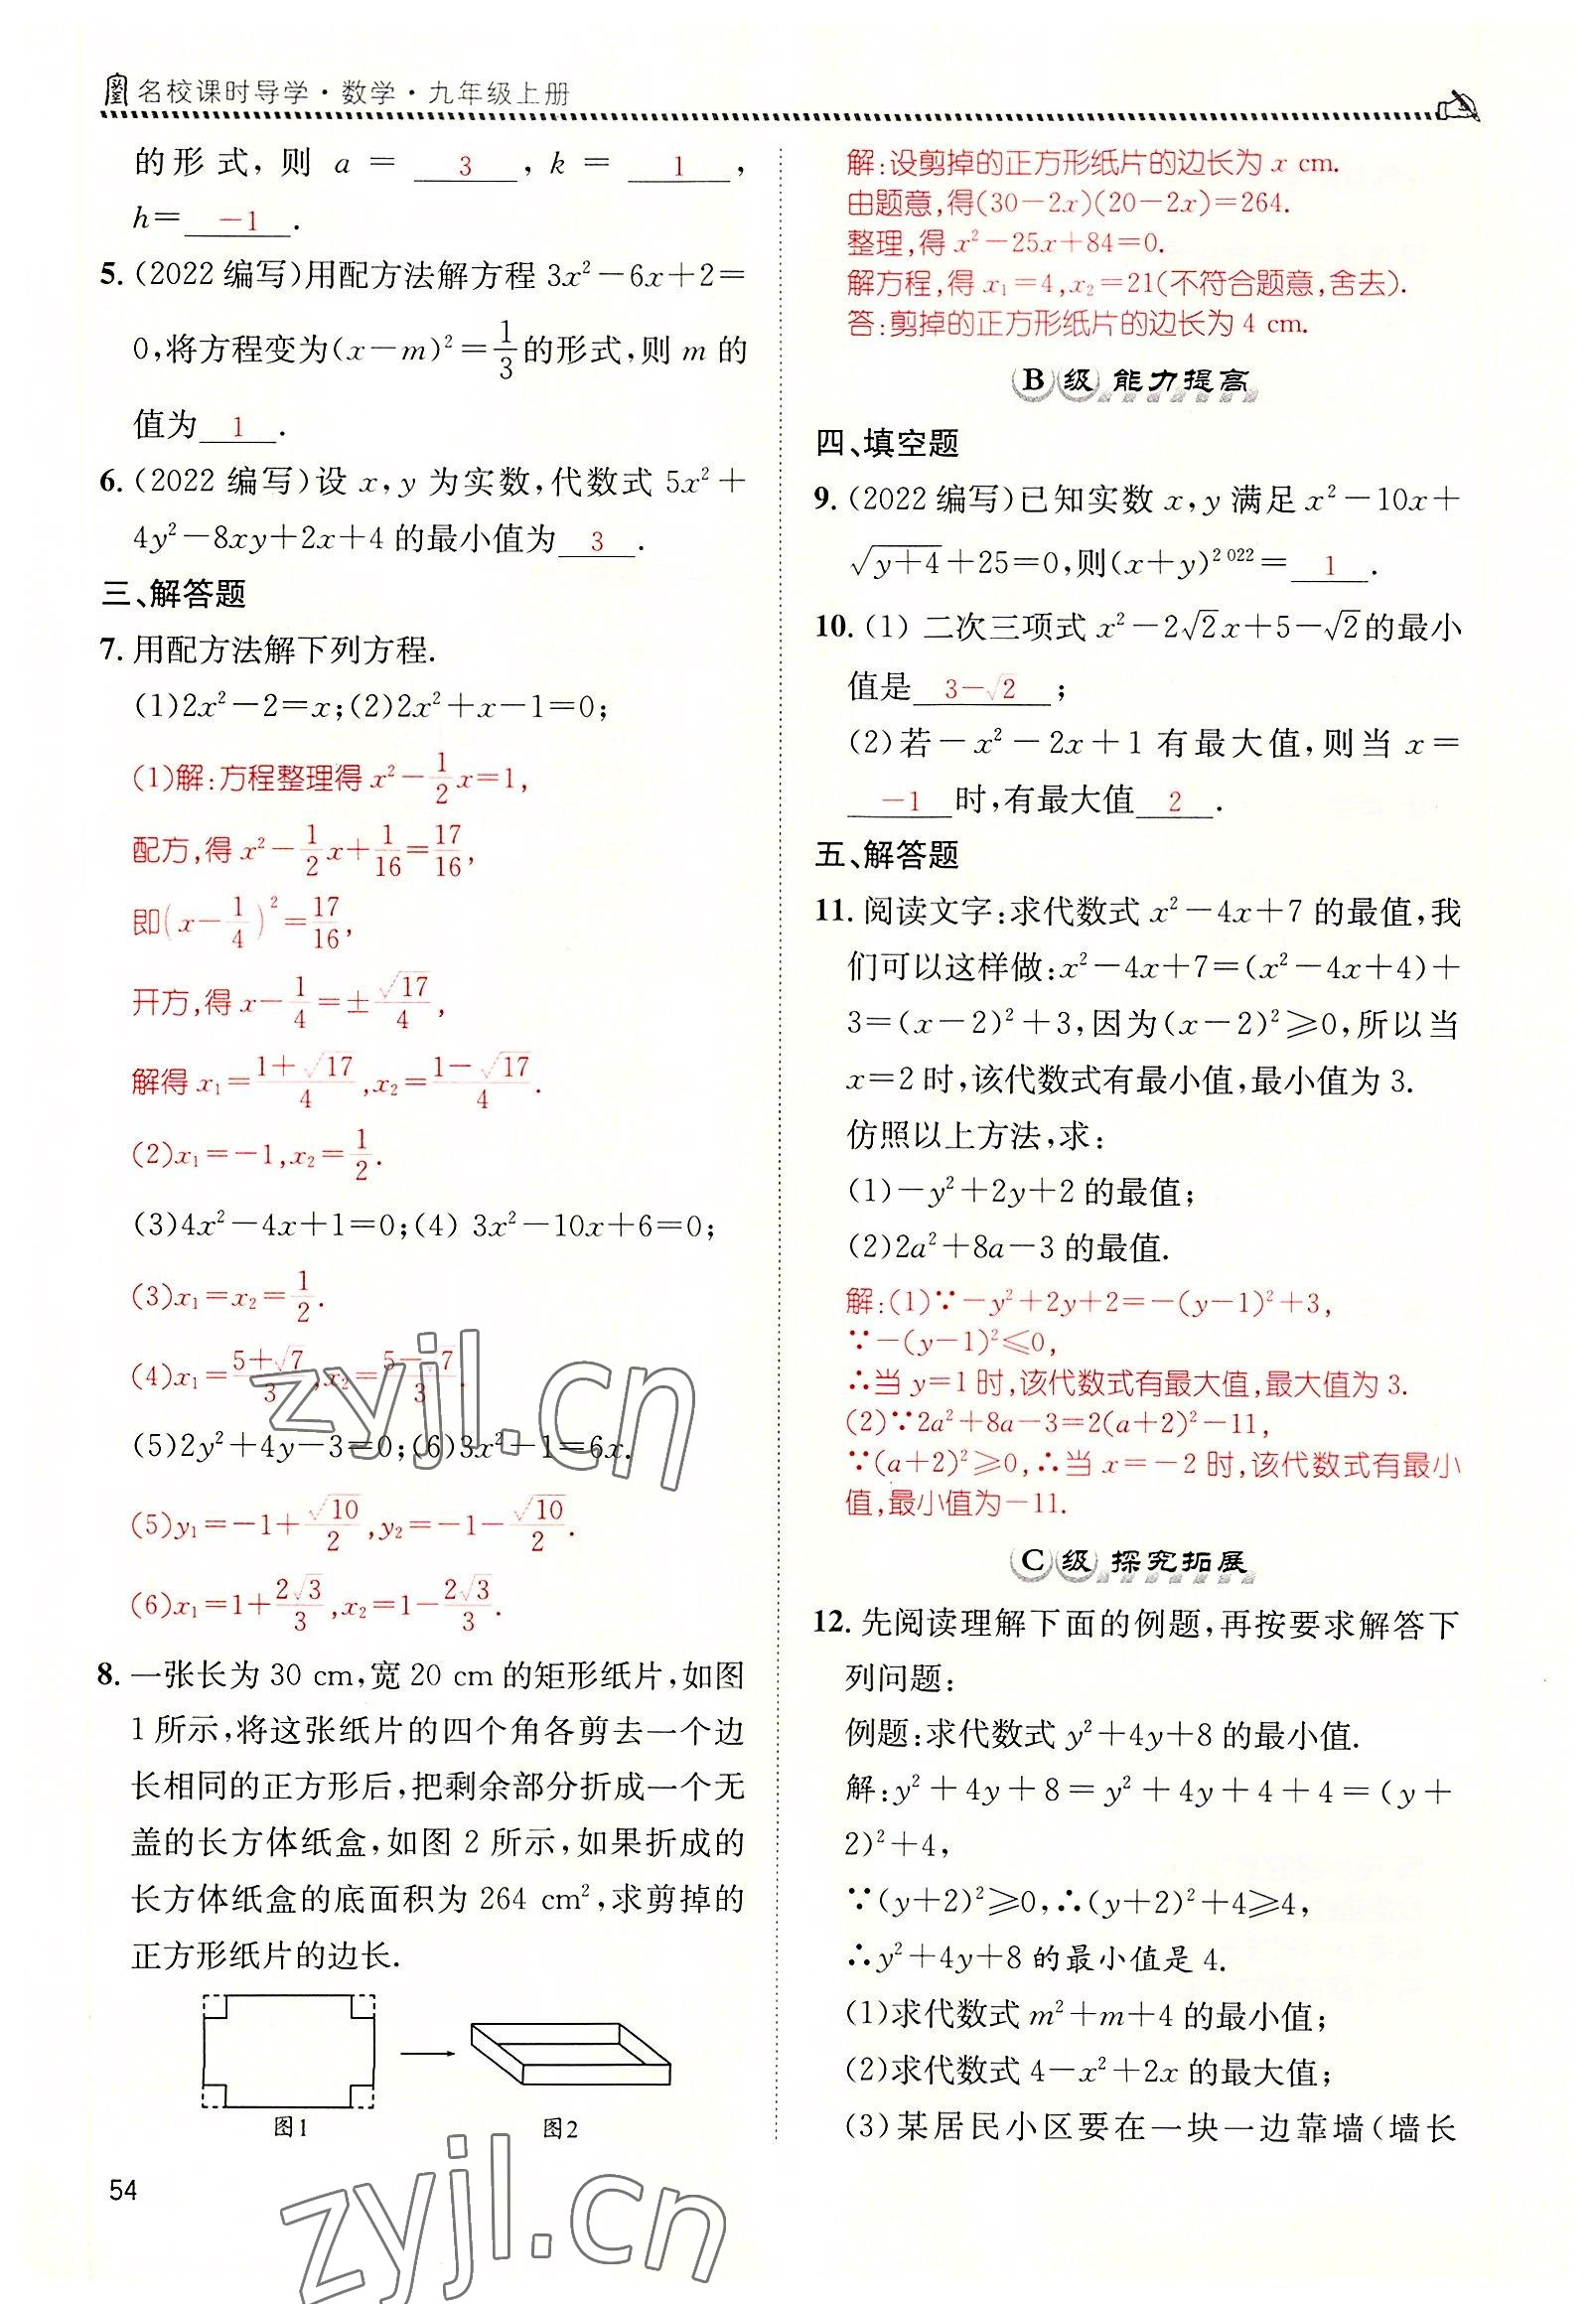 名校课时导学·数学·九年级上册
的形式,则 a = 3 , k = 1 ,
h= −1 .
5. (2022 编写)用配方法解方程 3x²−6x+2=
0,将方程变为(x−m)²=1/3的形式,则 m 的
值为 1 .
6. (2022 编写)设 x,y 为实数,代数式 5x²+
4y²−8xy+2x+4 的最小值为 3 .
三、解答题
7. 用配方法解下列方程.
(1)2x²−2=x;(2)2x²+x−1=0;
(1)解:方程整理得 x²−1/2x=1,
配方,得 x²−1/2x+1/16=17/16,
即(x−1/4)²=17/16,
开方,得 x−1/4=±√17/4,
解得 x₁=(1+√17)/4,x₂=(1−√17)/4.
(2)x₁=−1,x₂=1/2.
(3)4x²−4x+1=0;(4) 3x²−10x+6=0;
(3)x₁=x₂=1/2.
(4)x₁=(5+√7)/3,x₂=(5−√7)/3.
(5)2y²+4y−3=0;(6)3x²+1=6x.
(5)y₁=−1+√10/2,y₂=−1−√10/2.
(6)x₁=1+2√3/3,x₂=1−2√3/3.
8. 一张长为 30 cm,宽 20 cm 的矩形纸片,如图
1 所示,将这张纸片的四个角各剪去一个边
长相同的正方形后,把剩余部分折成一个无
盖的长方体纸盒,如图 2 所示,如果折成的
长方体纸盒的底面积为 264 cm²,求剪掉的
正方形纸片的边长.
图1 图2
54
解:设剪掉的正方形纸片的边长为 x cm.
由题意,得(30−2x)(20−2x)=264.
整理,得 x²−25x+84=0.
解方程,得 x₁=4,x₂=21(不符合题意,舍去).
答:剪掉的正方形纸片的边长为 4 cm.
B级 能力提高
四、填空题
9. (2022 编写)已知实数 x,y 满足 x²−10x+
√(y+4)+25=0,则(x+y)²⁰²²= 1 .
10. (1) 二次三项式 x²−2√2x+5−√2的最小
值是 3−√2 ;
(2)若−x²−2x+1 有最大值,则当 x=
−1 时,有最大值 2 .
五、解答题
11. 阅读文字:求代数式 x²−4x+7 的最值,我
们可以这样做:x²−4x+7=(x²−4x+4)+
3=(x−2)²+3,因为(x−2)²⩾0,所以当
x=2 时,该代数式有最小值,最小值为 3.
仿照以上方法,求:
(1)−y²+2y+2 的最值;
(2)2a²+8a−3 的最值.
解:(1)∵−y²+2y+2=−(y−1)²+3,
∵−(y−1)²⩽0,
∴当 y=1 时,该代数式有最大值,最大值为 3.
(2)∵2a²+8a−3=2(a+2)²−11,
∵(a+2)²⩾0,∴当 x=−2 时,该代数式有最小
值,最小值为−11.
C级 探究拓展
12. 先阅读理解下面的例题,再按要求解答下
列问题:
例题:求代数式 y²+4y+8 的最小值.
解:y²+4y+8=y²+4y+4+4=(y+
2)²+4,
∵(y+2)²⩾0,∴(y+2)²+4⩾4,
∴y²+4y+8 的最小值是 4.
(1)求代数式 m²+m+4 的最小值;
(2)求代数式 4−x²+2x 的最大值;
(3)某居民小区要在一块一边靠墙(墙长
zyjl.cn
zyjl.cn